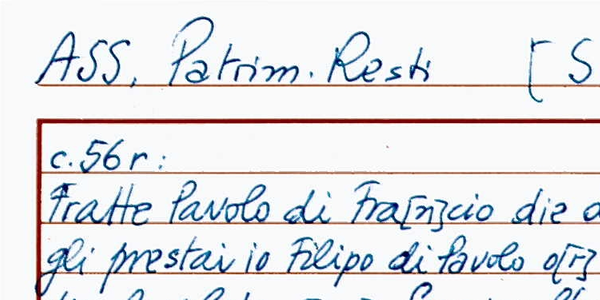 ASS, Patrim. Resti [S
c.56r:
Fratte Pavolo di Fra[n]cio die
gli prestai io Filipo di Pavolo o[r]